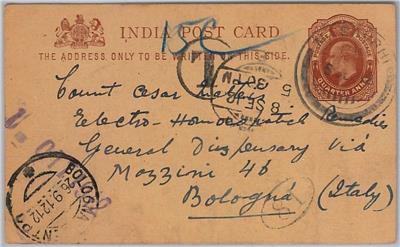 INDIA POST CARD
THE ADDRESS ONLY TO BE WRITTEN ON THIS SIDE.
QUARTER ANNA
15C
T
5
30 PM
8 SE
Count Cesar
Electro-Homoeopatich Remedies
General Dispensary Via
Mazzini 46
Bologna (Italy)
BOLOGNA
26.9.12 12